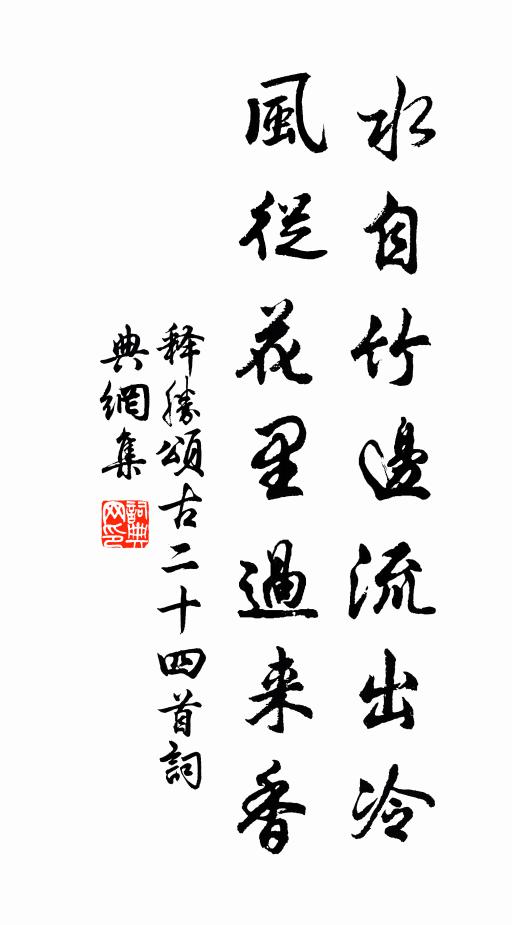 水自竹邊流出冷
風從花里過来香
释勝頌古二十四首詞
典網集
詞典網印